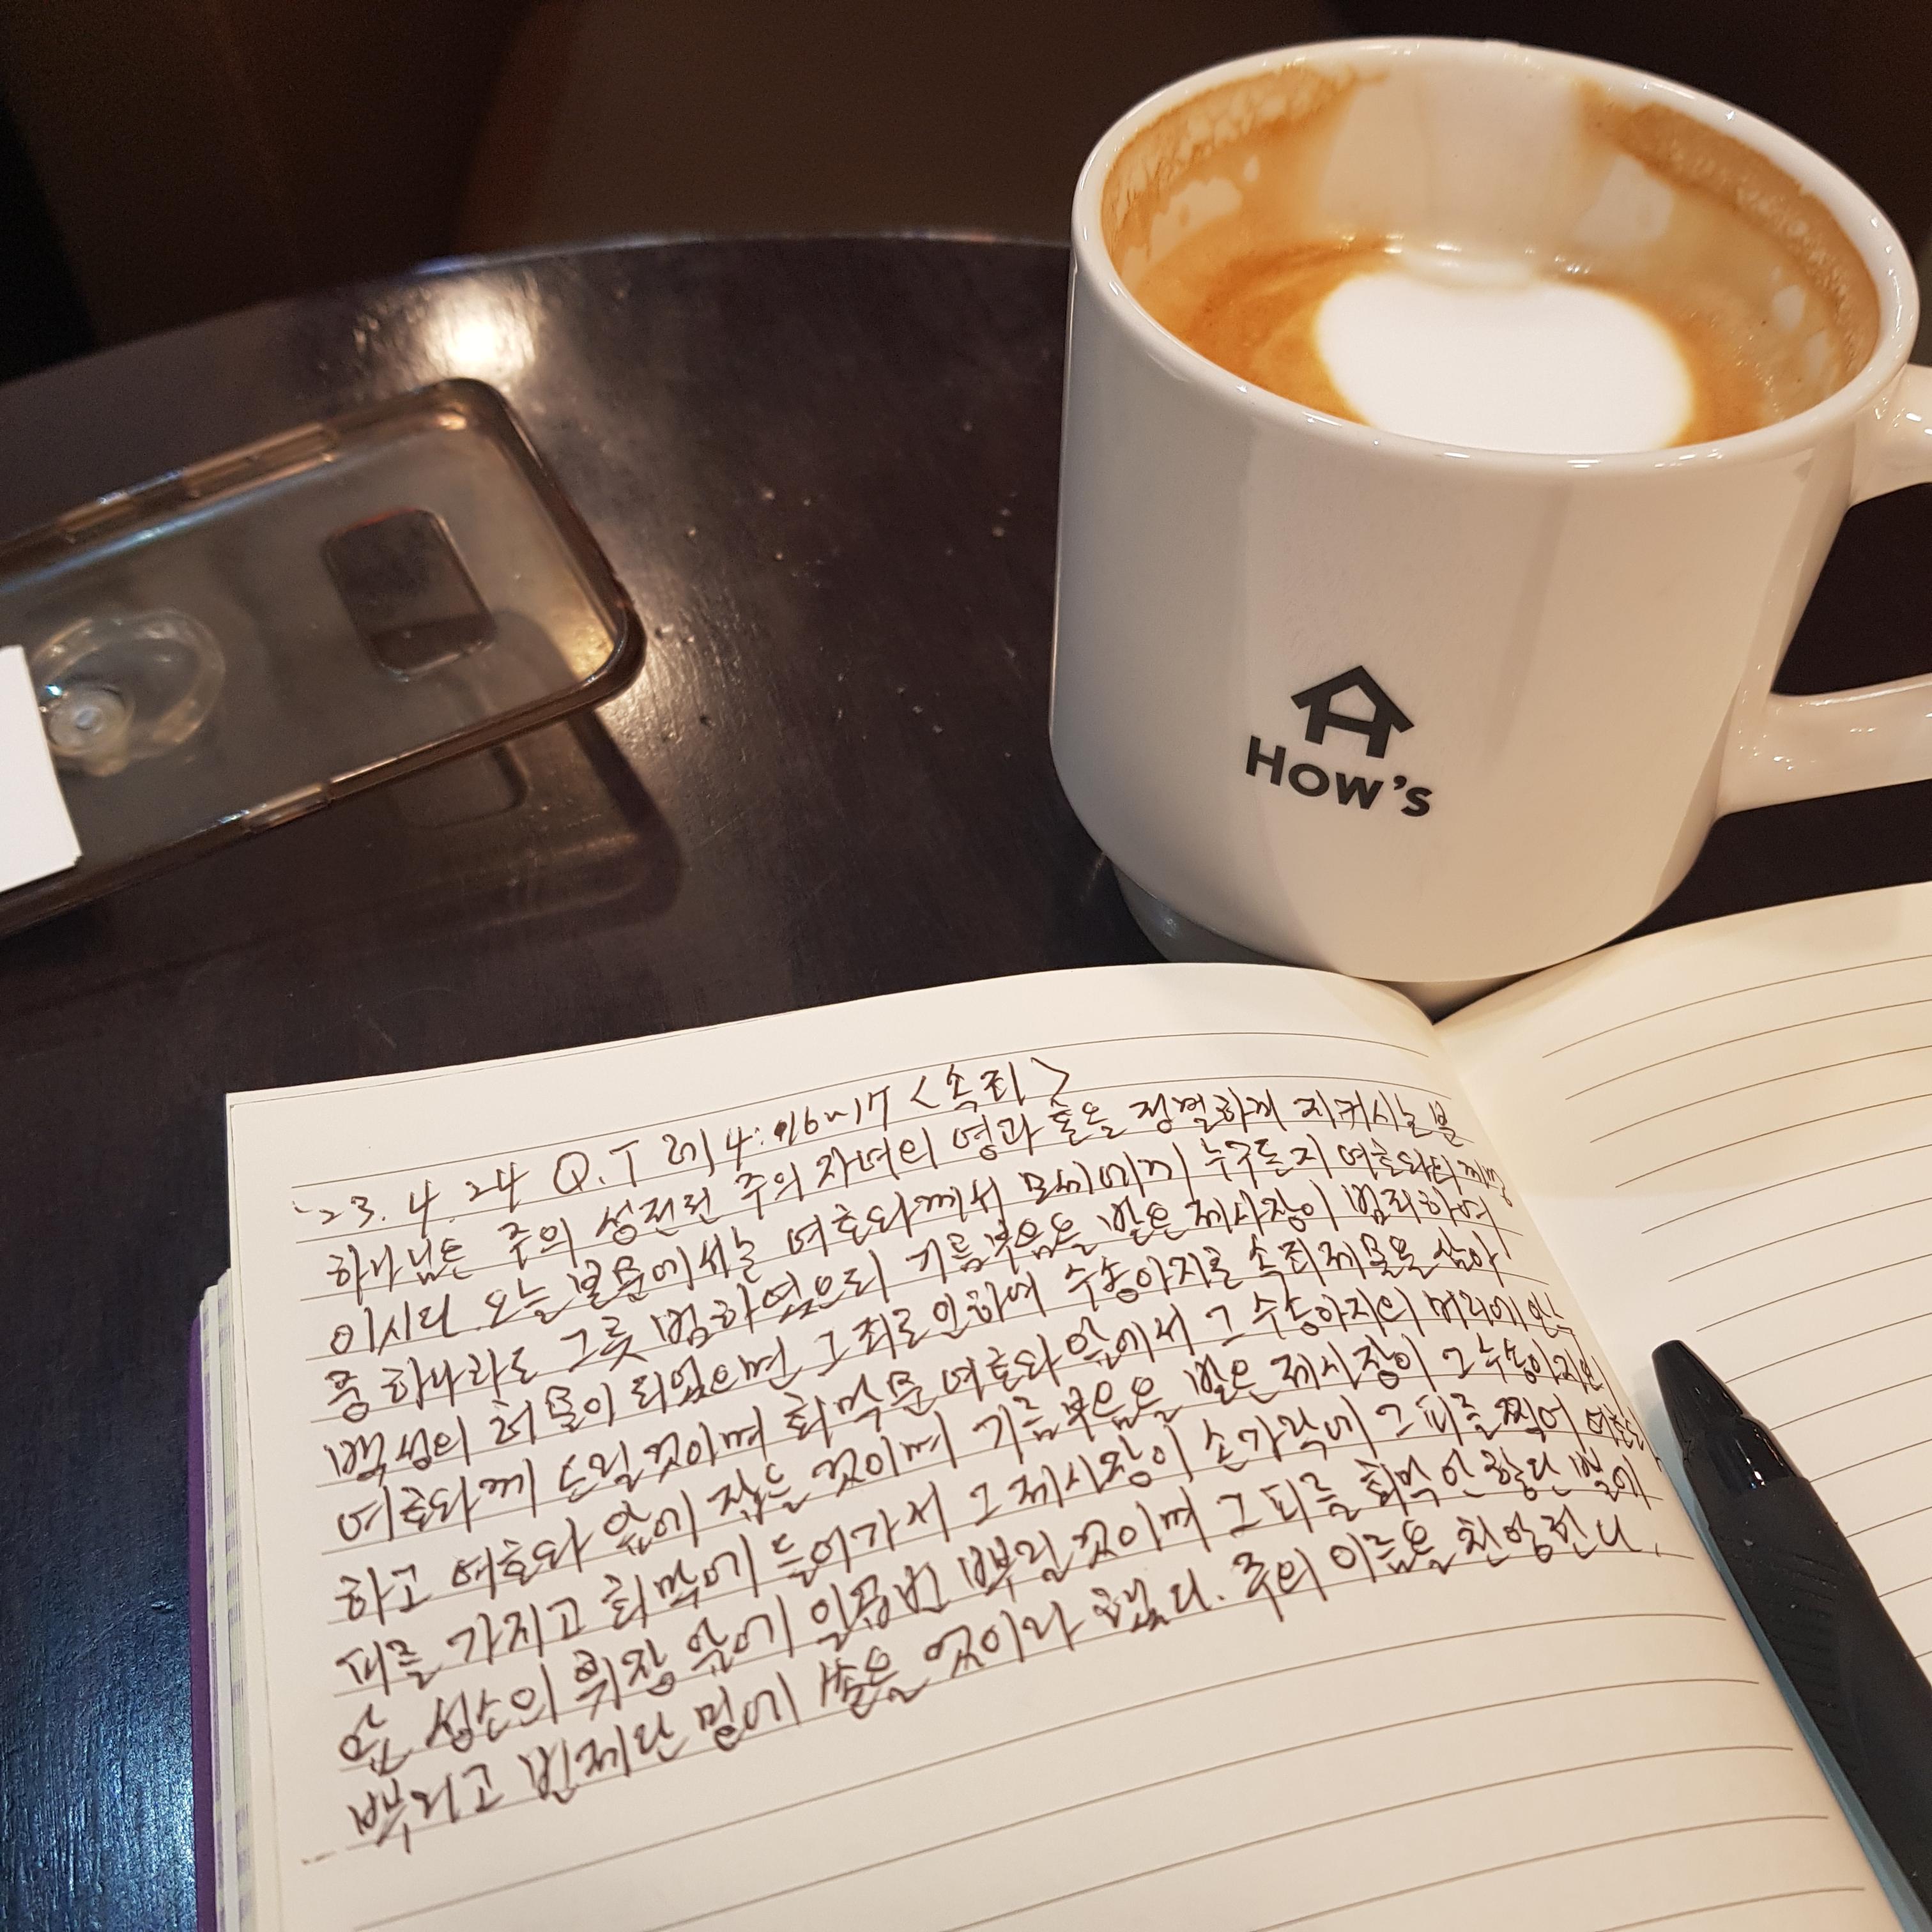 How's
'23. 4. 24 Q.T 레4:16~17 <속죄>
하나님은 주의 성전된 주의 자녀의 영과 혼을 정결하게 지켜시는 분
이시다. 오늘 본문에서는 여호와께서 모세에게 누구든지 여호와의
중 하나라도 그릇 범하였으되 기름부음을 받은 제사장이 범죄하여
백성의 허물이 되었으면 그 죄로 인하여 수송아지로 속죄제물을 삼아
여호와께 드릴 것이며 회막문 여호와 앞에서 그 수송아지의 머리에 안수
하고 여호와 앞에 잡을 것이며 기름부음을 받은 제사장이 그 수송아지의
피를 가지고 회막에 들어가서 그 제사장이 손가락에 그 피를 찍어 여호와
앞 성소의 휘장 앞에 일곱번 뿌릴 것이며 그 피를 회막 안 향단 뿔에
뿌리고 번제단 밑에 쏟을 것이라 했다. 주의 이름을 찬양한다.